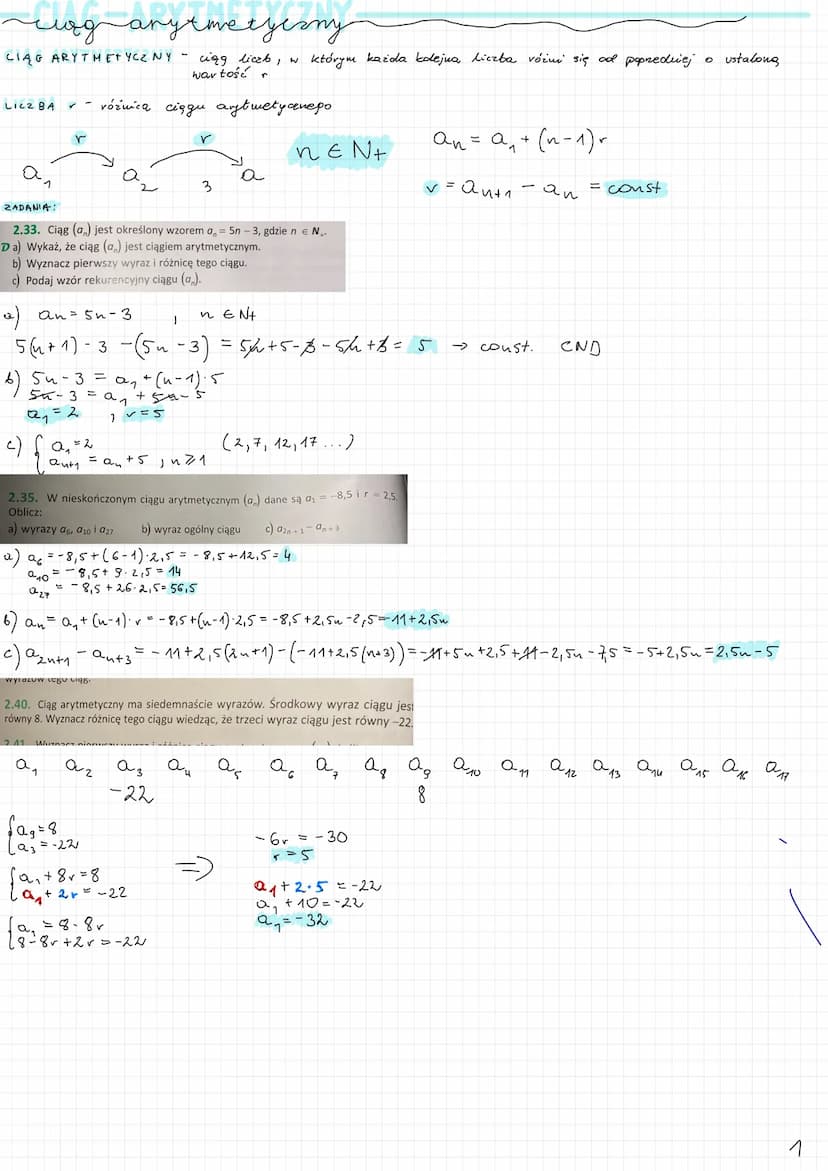 CIĄG ARYTMETYCZNY
ciąg arytmetyczny
CIĄG ARYTHETYCZNY - ciąg liczb, w którym każda kolejna liczba różni się od poprzedniej o ustaloną
wartość r
LICZBA r - różnica ciągu arytmetycznego
r r
a₁ a₂ a₃
n ∈ N+
aₙ = a₁ + (n-1)r
r = aₙ₊₁ - aₙ = const
ZADANIA:
2.33. Ciąg (aₙ) jest określony wzorem aₙ = 5n – 3, gdzie n ∈ N₊.
D a) Wykaż, że ciąg (aₙ) jest ciągiem arytmetycznym.
b) Wyznacz pierwszy wyraz i różnicę tego ciągu.
c) Podaj wzór rekurencyjny ciągu (aₙ).
a) an = 5n - 3 , n ∈ N+
5(n+1) - 3 - (5n - 3) = 5n + 5 - 3 - 5n + 3 = 5 → const. CND
b) 5n - 3 = a₁ + (n-1)·5
5n - 3 = a₁ + 5n - 5
a₁ = 2 , r = 5
c) { a₁ = 2 (2, 7, 12, 17 ...)
aₙ₊₁ = aₙ + 5 , n ⩾ 1
2.35. W nieskończonym ciągu arytmetycznym (aₙ) dane są a₁ = –8,5 i r = 2,5.
Oblicz:
a) wyrazy a₆, a₁₀ i a₂₇ b) wyraz ogólny ciągu c) a₂ₙ₊₁ – aₙ₊₃
a) a₆ = -8,5 + (6-1)·2,5 = -8,5 + 12,5 = 4
a₁₀ = -8,5 + 9·2,5 = 14
a₂₇ = -8,5 + 26·2,5 = 56,5
b) aₙ = a₁ + (n-1)·r = -8,5 + (n-1)·2,5 = -8,5 + 2,5n - 2,5 = -11 + 2,5n
c) a₂ₙ₊₁ - aₙ₊₃ = -11 + 2,5(2n+1) - (-11 + 2,5(n+3)) = -11 + 5n + 2,5 + 11 - 2,5n - 7,5 = -5 + 2,5n = 2,5n - 5
wyrazów tego ciągu.
2.40. Ciąg arytmetyczny ma siedemnaście wyrazów. Środkowy wyraz ciągu jest
równy 8. Wyznacz różnicę tego ciągu wiedząc, że trzeci wyraz ciągu jest równy –22.
2.41. Wyznacz pierwszy wyraz i różnicę
a₁ a₂ a₃ a₄ a₅ a₆ a₇ a₈ a₉ a₁₀ a₁₁ a₁₂ a₁₃ a₁₄ a₁₅ a₁₆ a₁₇
-22 8
{ a₉ = 8
a₃ = -22
{ a₁ + 8r = 8
a₁ + 2r = -22
{ a₁ = 8 - 8r
8 - 8r + 2r = -22
⇒
-6r = -30
r = 5
a₁ + 2·5 = -22
a₁ + 10 = -22
a₁ = -32
1